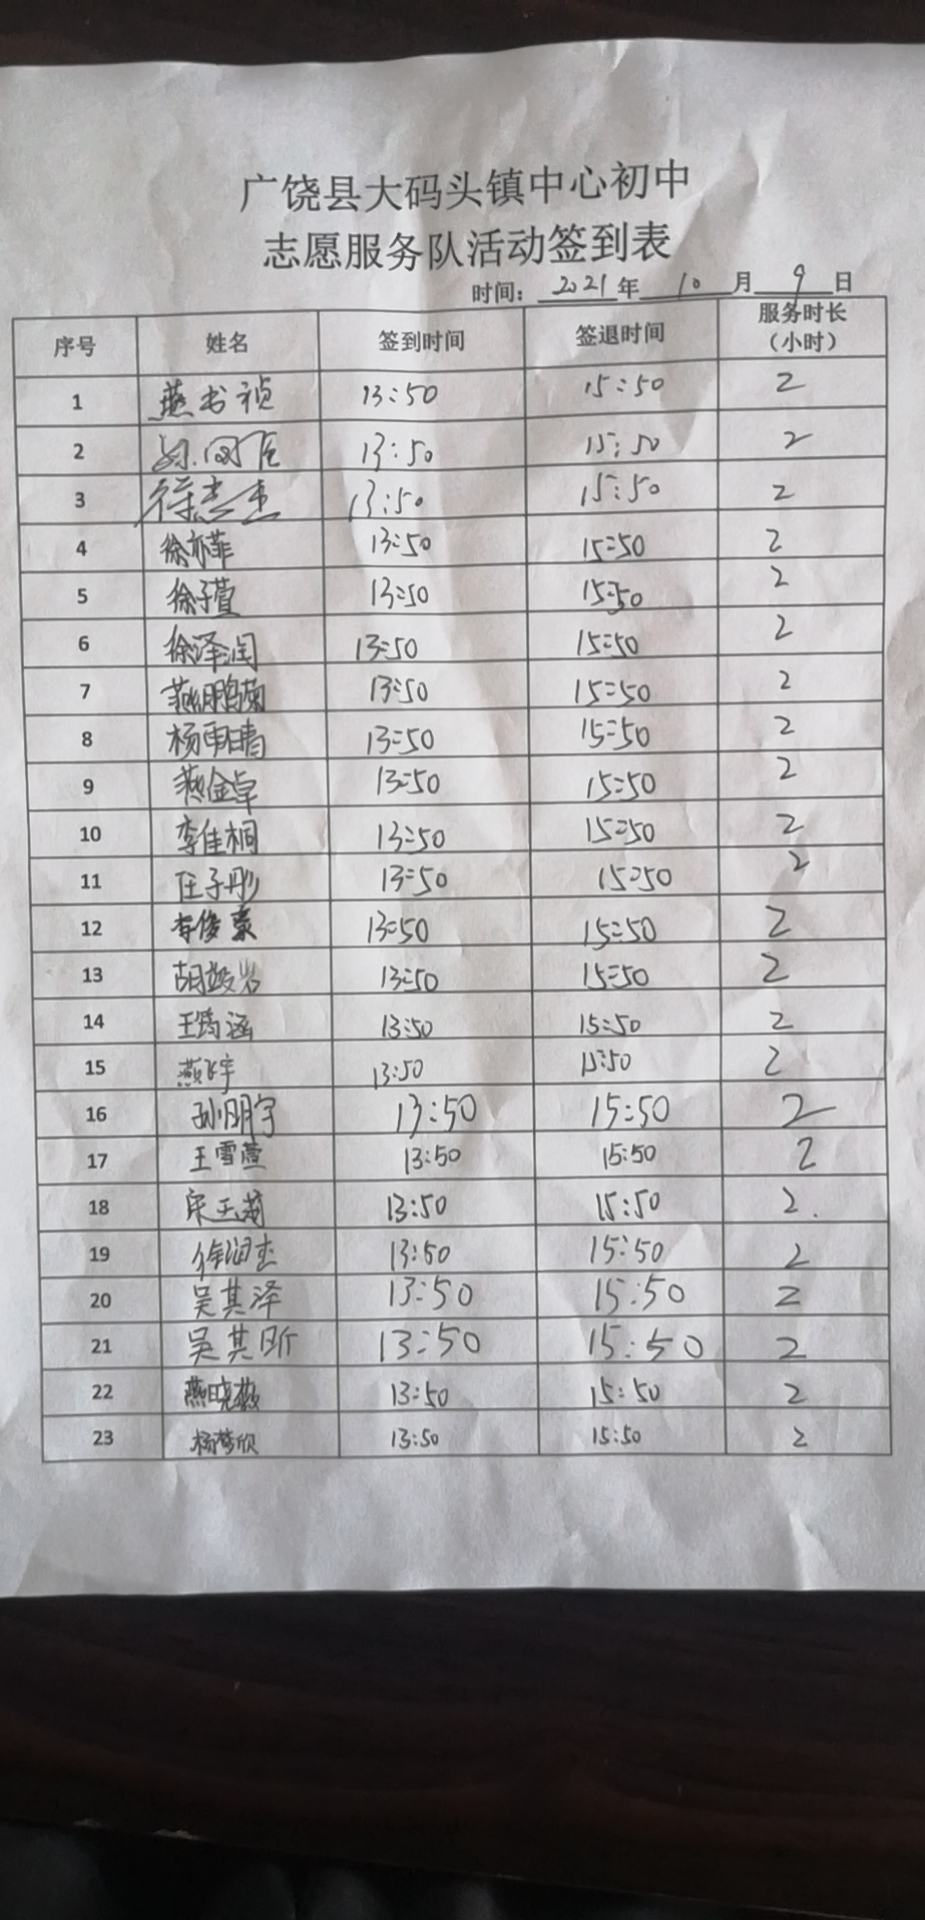 广饶县大码头镇中心初中
志愿服务队活动签到表
时间：2021年10月9日
序号 姓名 签到时间 签退时间 服务时长（小时）
1 燕书祯 13:50 15:50 2
2 13:50 15:50 2
3 徐志杰 13:50 15:50 2
4 徐亦菲 13:50 15:50 2
5 徐子萱 13:50 15:50 2
6 徐泽润 13:50 15:50 2
7 13:50 15:50 2
8 杨雨晴 13:50 15:50 2
9 燕金卓 13:50 15:50 2
10 李佳桐 13:50 15:50 2
11 任子彤 13:50 15:50 2
12 李俊豪 13:50 15:50 2
13 13:50 15:50 2
14 13:50 15:50 2
15 燕飞宇 13:50 15:50 2
16 孙明宇 13:50 15:50 2
17 王雪萱 13:50 15:50 2
18 13:50 15:50 2
19 徐润杰 13:50 15:50 2
20 吴其泽 13:50 15:50 2
21 吴其昕 13:50 15:50 2
22 燕晓薇 13:50 15:50 2
23 杨梦欣 13:50 15:50 2